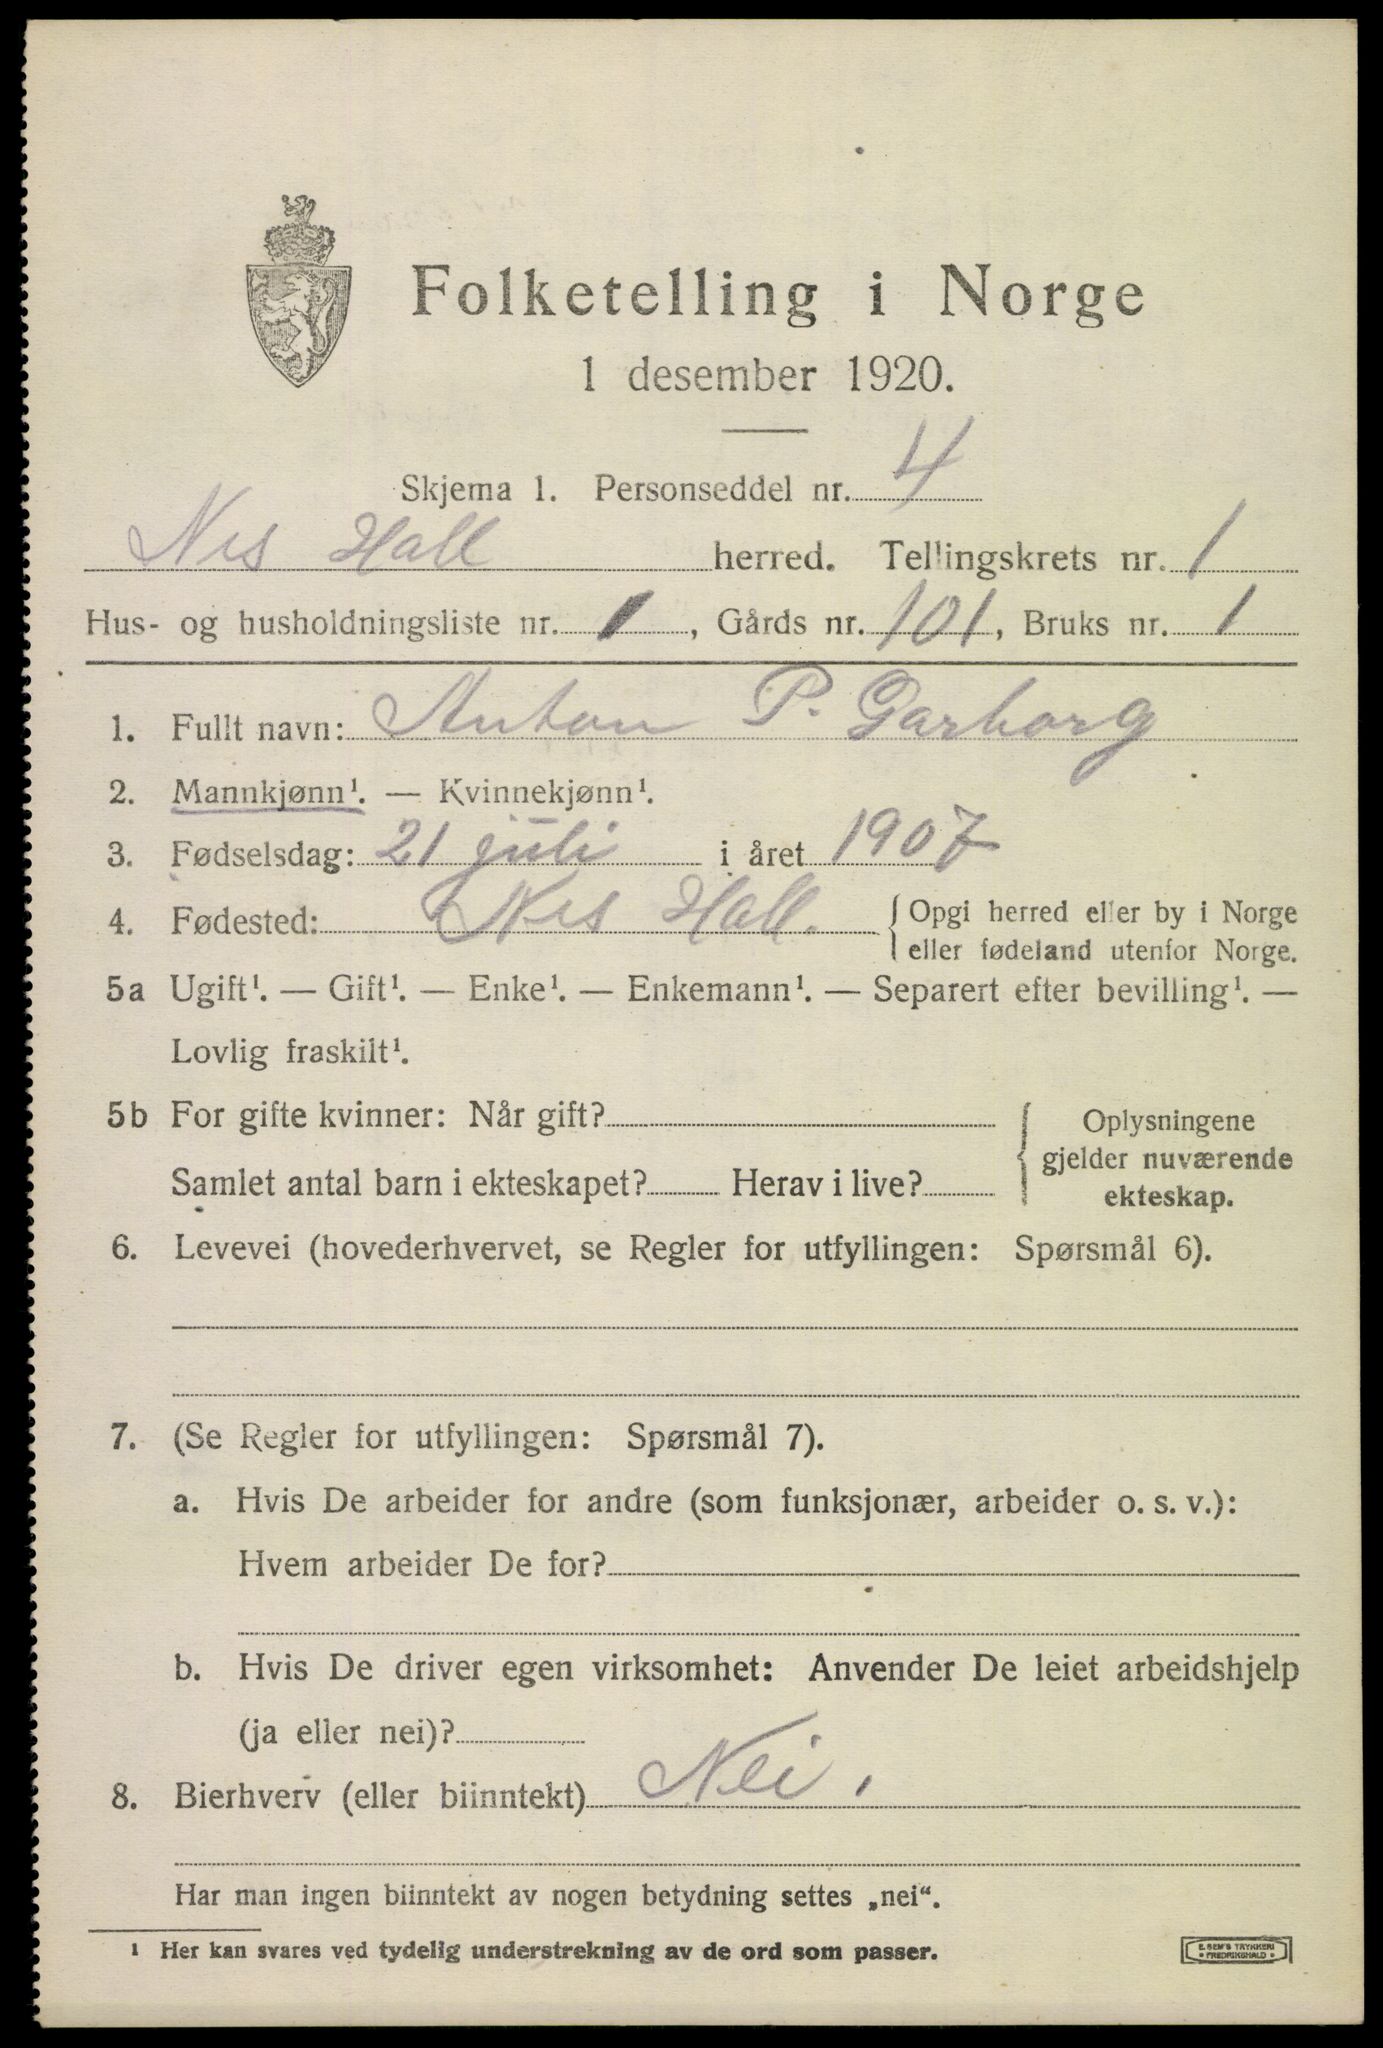 Folketelling i Norge
1 desember 1920.
Skjema 1. Personseddel nr. 4
Nes Hall herred. Tellingskrets nr. 1
Hus- og husholdningsliste nr. 1, Gårds nr. 101, Bruks nr. 1
1. Fullt navn: Anton P. Garborg
2. Mannkjønn¹. — Kvinnekjønn¹.
3. Fødselsdag: 21 juli i året 1907
4. Fødested: Nes Hall. { Opgi herred eller by i Norge
eller fødeland utenfor Norge.
5a Ugift¹. — Gift¹. — Enke¹. — Enkemann¹. — Separert efter bevilling¹. —
Lovlig fraskilt¹.
5b For gifte kvinner: Når gift?
Samlet antal barn i ekteskapet? Herav i live?
{ Oplysningene
gjelder nuværende
ekteskap.
6. Levevei (hovederhvervet, se Regler for utfyllingen: Spørsmål 6).
7. (Se Regler for utfyllingen: Spørsmål 7).
a. Hvis De arbeider for andre (som funksjonær, arbeider o. s. v.):
Hvem arbeider De for?
b. Hvis De driver egen virksomhet: Anvender De leiet arbeidshjelp
(ja eller nei)?
8. Bierhverv (eller biinntekt) Nei.
Har man ingen biinntekt av nogen betydning settes „nei“.
¹ Her kan svares ved tydelig understrekning av de ord som passer.
E. SEM'S TRYKKERI
FREDRIKSHALD